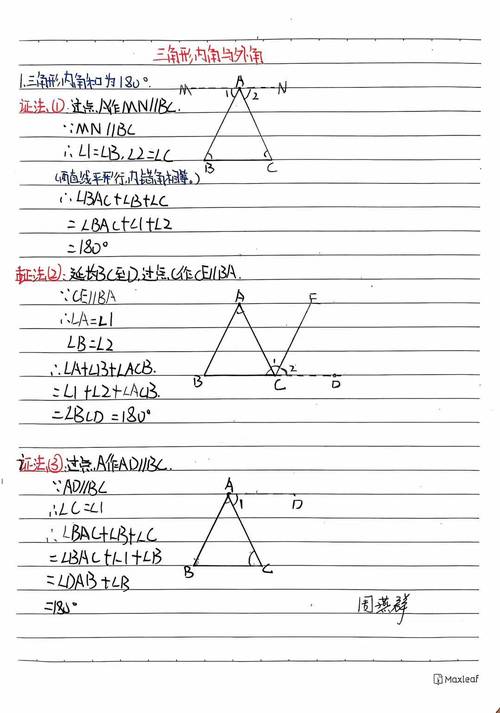 三角形内角与外角
1.三角形内角和为180°.
M A N
1 2
证法(1):过点A作MN//BC.
∵MN//BC
∴∠1=∠B,∠2=∠C
B C
(两直线平行,内错角相等.)
∴∠BAC+∠B+∠C
=∠BAC+∠1+∠2
=180°
证法(2):延长BC至D,过点C作CE//BA.
∵CE//BA
A E
∴∠A=∠1
∠B=∠2
∴∠A+∠B+∠ACB
1 2
B C D
=∠1+∠2+∠ACB.
=∠BCD=180°
证法(3):过点A作AD//BC.
∵AD//BC
A
1 D
∴∠C=∠1
∴∠BAC+∠B+∠C
=∠BAC+∠1+∠B
B C
=∠DAB+∠B
=180°
周群
Maxleaf